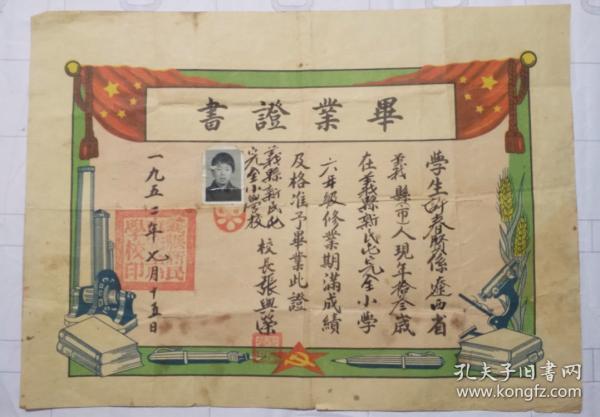 畢業證書
學生許春賢係遼西省
義縣(市)人現年拾叁歲
在義縣新民屯完全小學
六年級修業期滿成績
及格准予畢業此證
義縣新民屯
完全小學校
校長張興榮
一九五二年七月十五日
孔夫子旧书网
www.kongfz.com